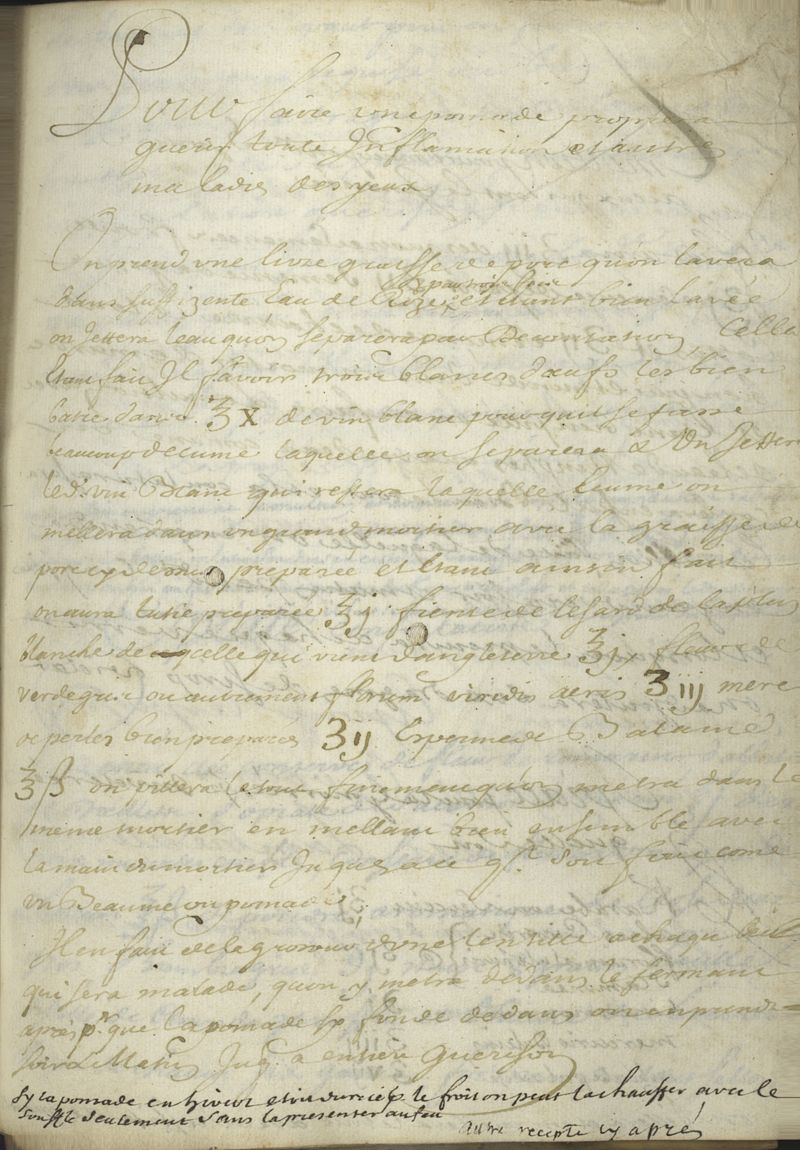 Pour faire une pomade propre a
guerir toute Inflamation et autres
maladies des yeux
On prend une livre graisse de porc qu'on lavera
dans suffizente Eau de Roze, et etant bien lavée
on Jettera leau quon separera par Decantation, Cella
Etant fait Il faut avoir trois blancs d'œufs les bien
batre dans ℥ X de vin blanc pour quil se fasse
beaucoup decume laquelle on separera & On Jettera
led. vin Blanc qui restera laquelle Ecume on
mellera dans un grand mortier avec la graisse de
porc cy dessus preparée et Etant ainsin fait
on aura tutie preparée ℥j fiente de lesard de la plus
blanche de celle qui vient dangleterre ℥j, fleur de
verdegris ou autrement florum viridis aeris ʒ iij mere
de perles bien preparée ʒ ij Esperme de Balaine
℥ß on pillera le tout finement qu'on metra dans le
meme mortier en mellant bien ensemble avec
la main du mortier Jusques a ce q.^l soit fait come
un Beaume ou pomade,
Il en faut de la grosseur d'une lentille a chaque œil
qui sera malade, quon y metra dedans le fermant
apres pr. que la pomade se fonde dedans on en prendra
soir & Matin Jusq. a entiere guerison
Sy la pomade en hiver etoit durcie p. le froit on peut la chauffer avec le
souffle seulement sans la presenter au feu
autre recepte cy aprés